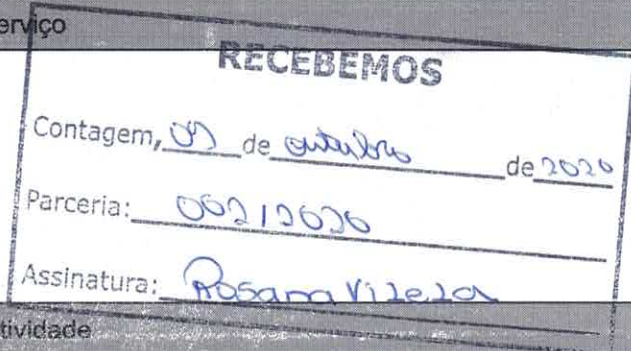 erviço
RECEBEMOS
Contagem, de outubro de 2020
Parceria:
Assinatura: Rosana Vilela
tividade